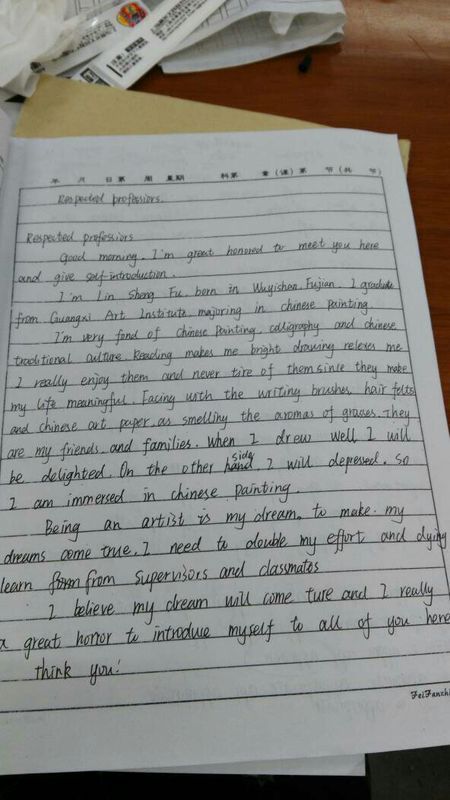 年 月 日第 周 星期 科第 章(课)第 节(共 节)
Respected professiors.
Respected professiors
Good morning. I'm great honored to meet you here
and give self-introduction.
I'm Lin Sheng Fu, born in Wuyishan, Fujian. I graduate
from Guangxi Art Institute majoring in chinese painting.
I'm very fond of chinese painting, calligraphy and chinese
traditional culture. Reading makes me bright drawing relexes me
I really enjoy them and never tire of them since they make
my life meaningful. Facing with the writing brushes, hair felts
and chinese art paper, as smelling the aromas of grasses. They
are my friends and families. When I drew well I will
be delighted. On the other side, I will depressed. So
I am immersed in chinese painting.
Being an artist is my dream, to make my
dreams come true. I need to double my effort and dying
learn from from supervisors and classmates
I believe my dream will come ture and I really
a great honor to introduce myself to all of you here
think you!
FeiFanchi